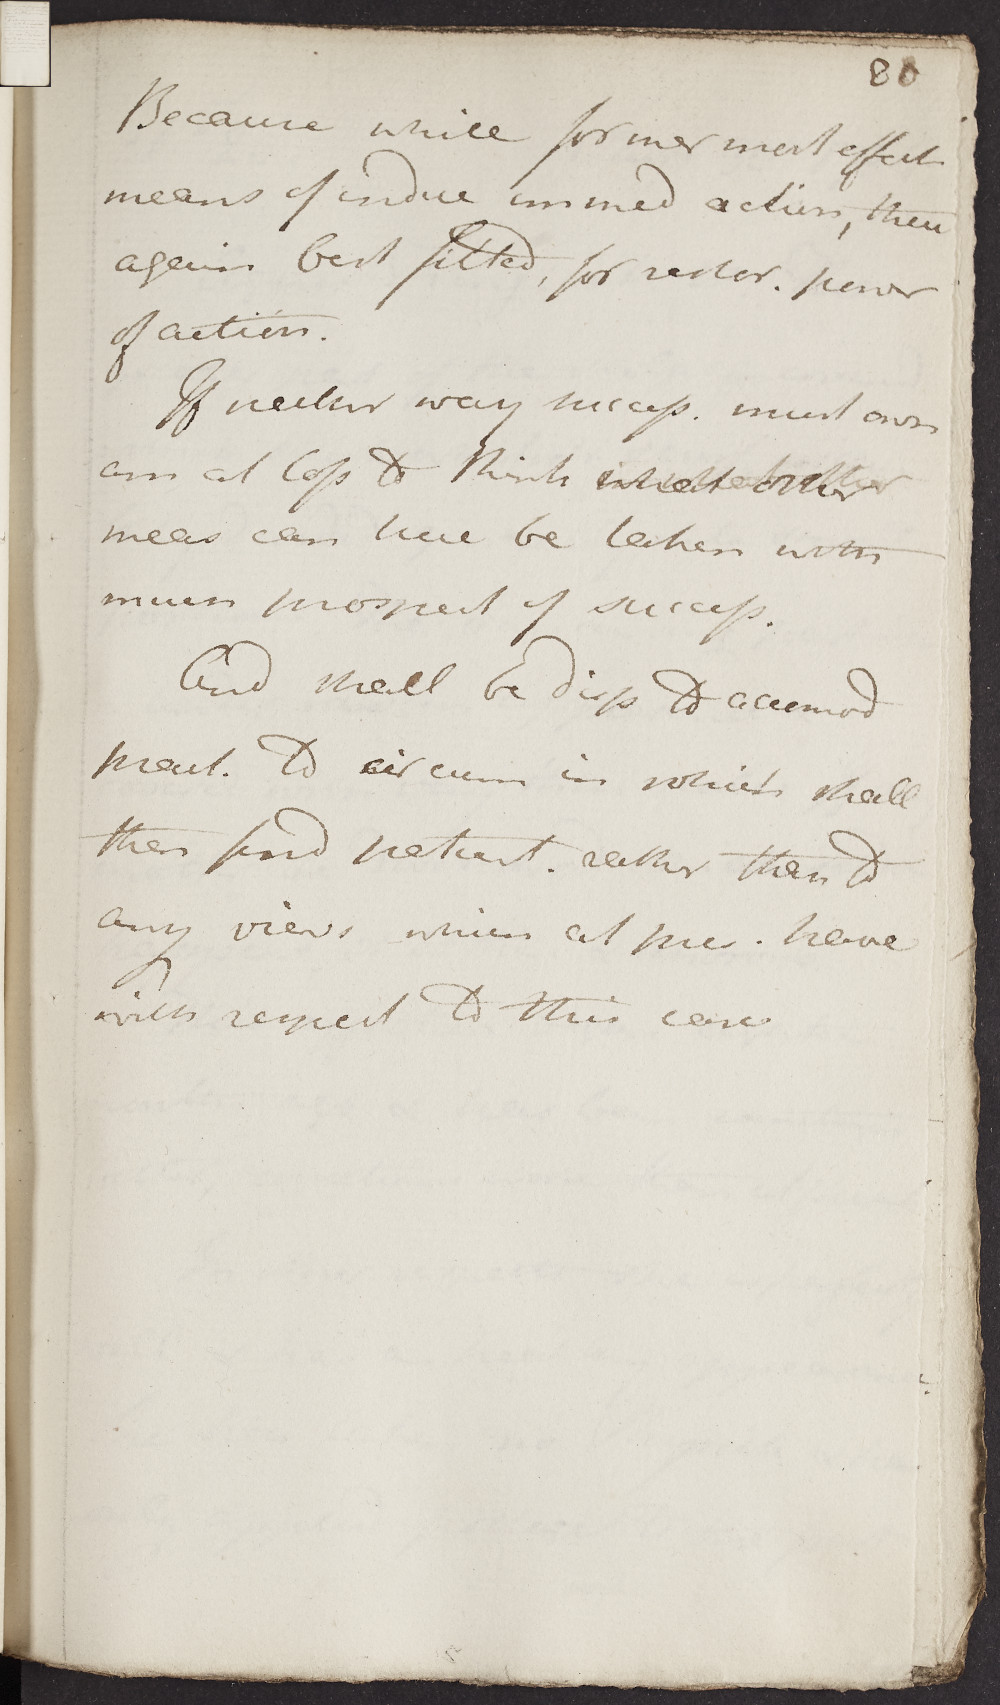 80
Because while former most effect
means of induc immed action, then
again best fitted, for restor. power
of action.
If neither way success. must own
am at loss to think what other
meas can here be taken with
much prospect of success.
And shall be disp to accomod
pract. to circum in which shall
then find patient. rather than to
any views which at pres. have
with respect to this case